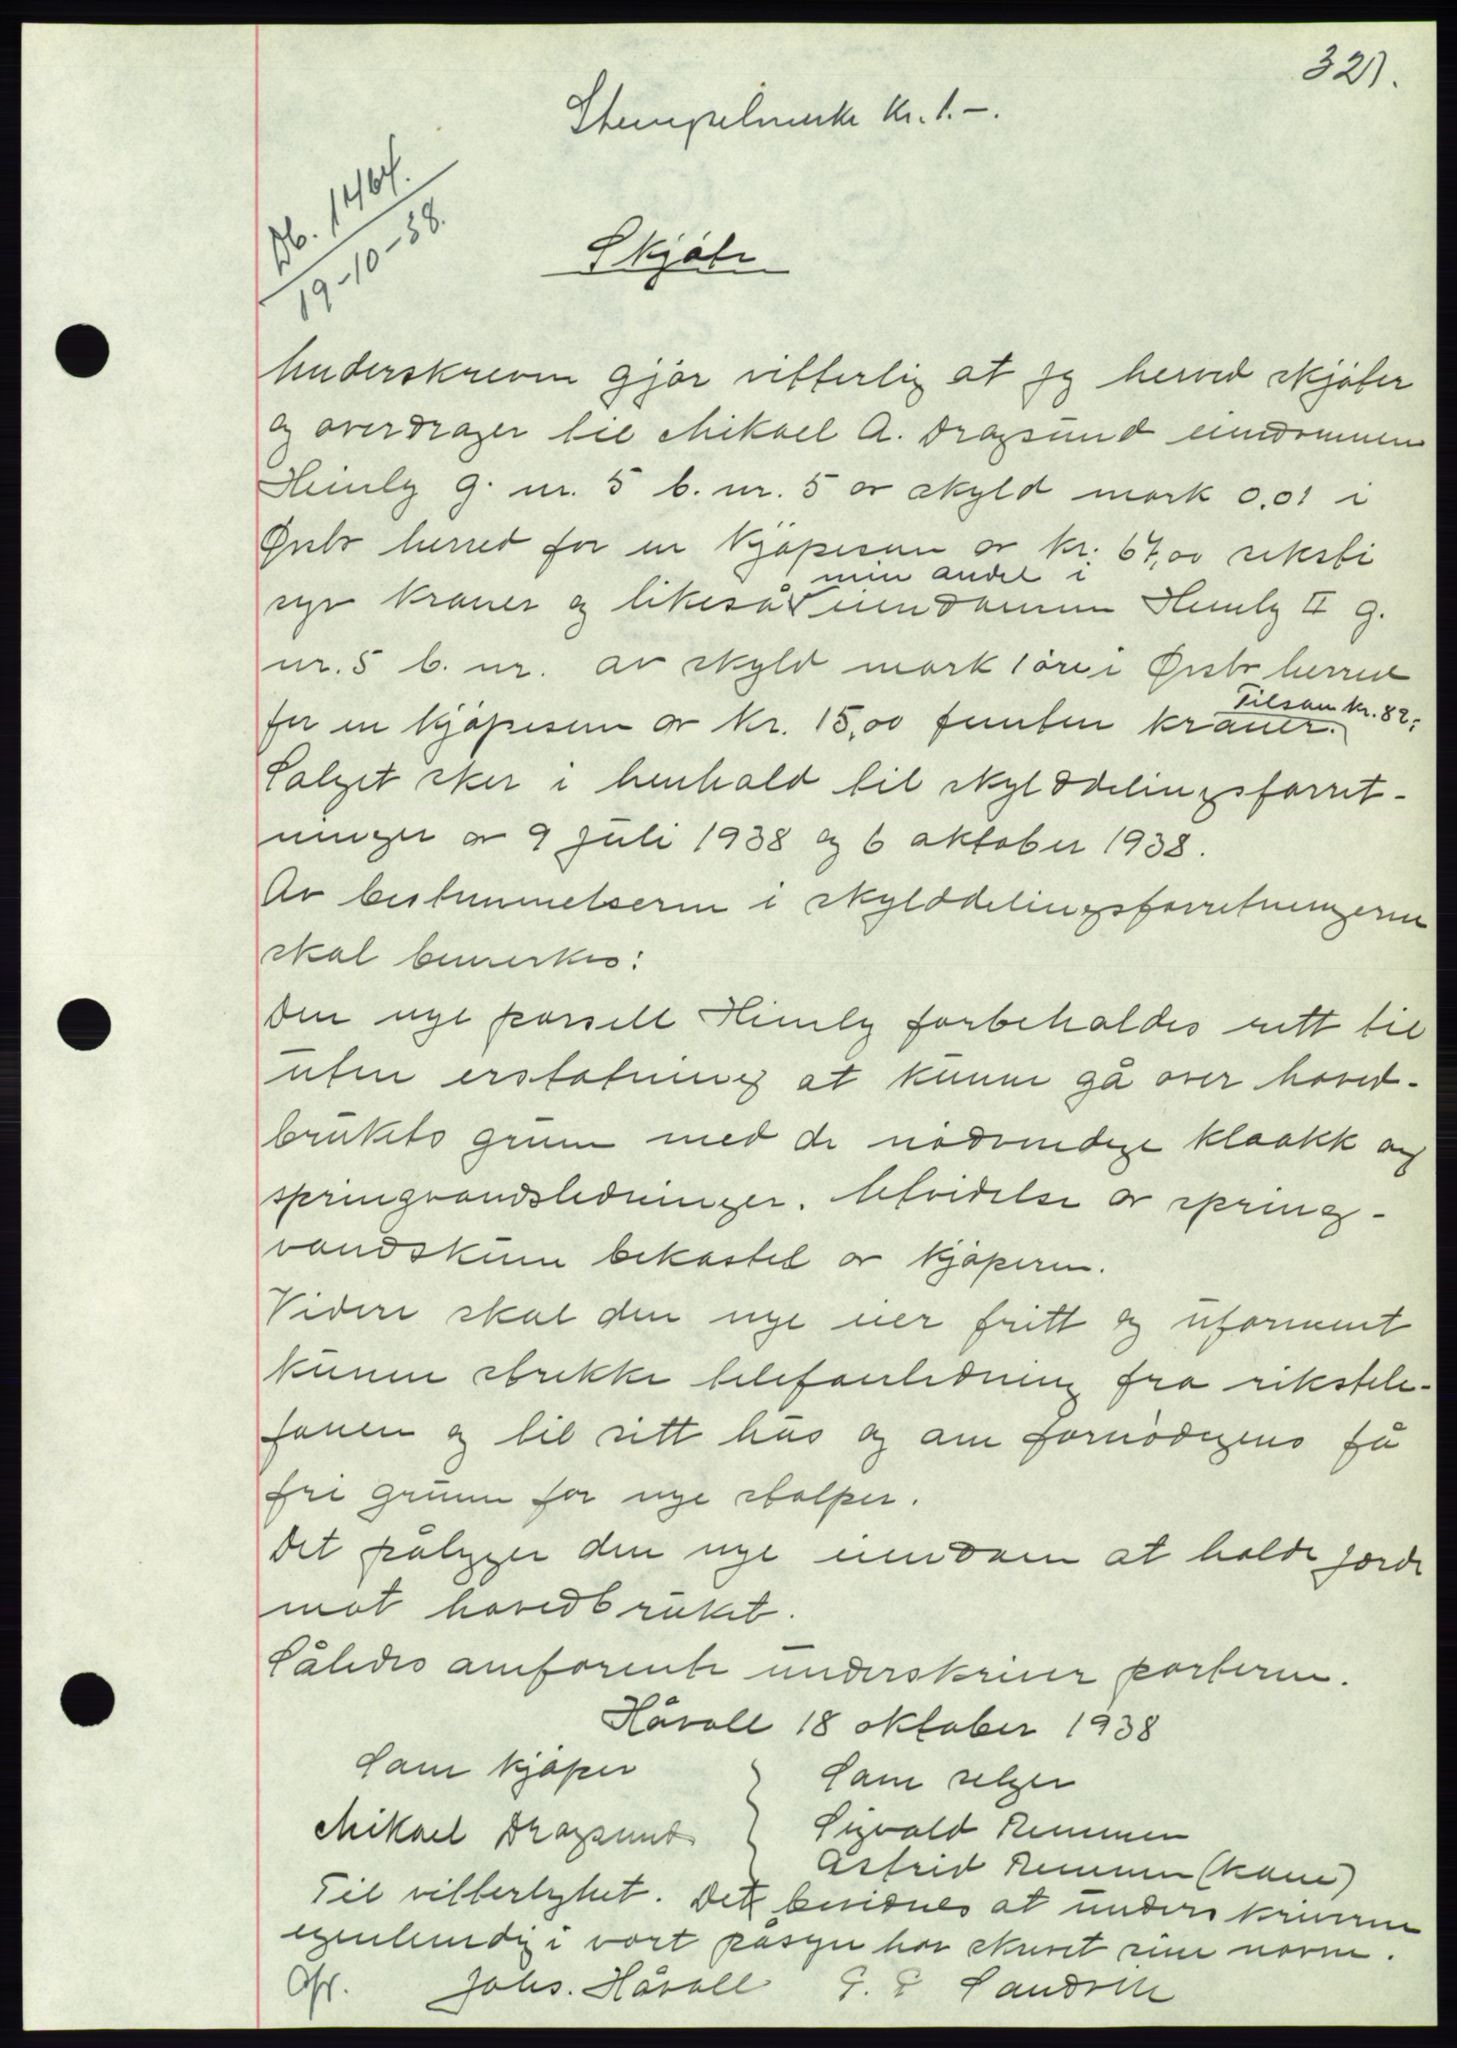 321.
Stempelmerke Kr. 1.-.
Db. 1464.
19-10-38.
Skjöte
Underskreven gjör vitterlig at jeg herved skjöter
og overdrager til Mikael A. Dragsund eiendommen
Heimly g. nr. 5 b. nr. 5 av skyld mark 0.01 i
Örsta herred for en kjöpesum av kr. 67,00 seksti
syv kroner og likeså min andel i eiendommen Heimly II g.
nr. 5 b. nr. av skyld mark 1 öre i Örsta herred
for en kjöpesum av kr. 15,00 femten kroner. Tilsam kr. 82.-
Salget sker i henhold til skylddelingsforret-
ninger av 9 juli 1938 og 6 oktober 1938.
Av bestemmelserne i skylddelingsforretningerne
skal bemerkes:
Den nye parsell Heimly forbeholdes rett til
uten erstatning at kunne gå over hoved-
brukets grunn med de nödvendige kloakk og
springvandsledninger. Utvidelse av spring-
vandskum bekostet av kjöperen.
Videre skal den nye eier fritt og uforment
kunne strekke telefonledning fra rikstele-
fonen og til sitt hus og om fornödigens få
fri grunn for nye stolper.
Det pålygger den nye eiendom at holde jorde
mot hovedbruket.
Således omforente underskriver parterne.
Håvoll 18 oktober 1938
Som kjöper
Mikael Dragsund
Som selger
Sigvald Remmen
Astrid Remmen (kone)
Til vitterlighet. Det bevidnes at underskriverne
egenhendig i vort påsyn har skrevet sine navne.
Afr. Johs. Håvoll G. E Sandvik